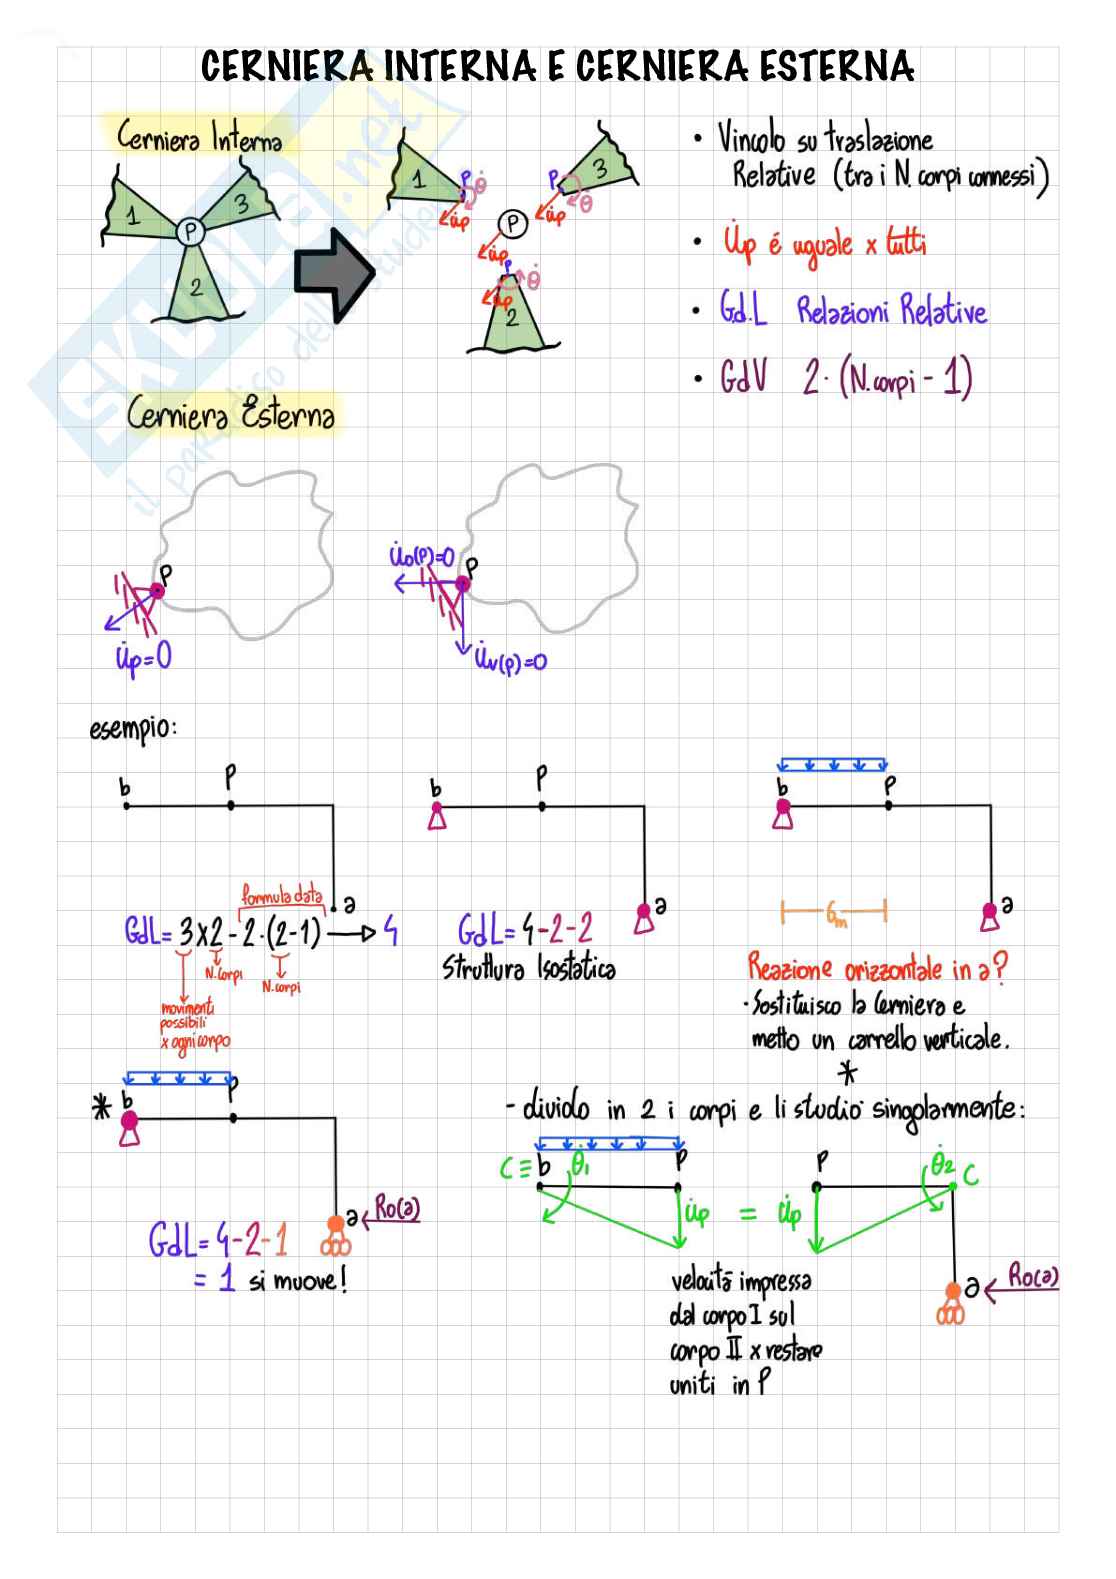 CERNIERA INTERNA E CERNIERA ESTERNA
Cerniera Interna
1
3
P
2
1
P
θ̇
u̇p
P
3
θ̇
u̇p
P
u̇p
P
θ̇
u̇p
2
• Vincolo su traslazione
Relative (tra i N. corpi connessi)
• u̇p é uguale x tutti
• Gd.L Relazioni Relative
• GdV 2·(N.corpi - 1)
SKUOLA.net
il paradiso dello studente
Cerniera Esterna
P
u̇p=0
u̇o(P)=0
P
u̇v(p)=0
esempio:
b
P
a
formula data
GdL= 3x2-2·(2-1) → 4
N.corpi
N.corpi
movimenti
possibili
x ogni corpo
b
P
a
GdL= 4-2-2
Struttura Isostatica
b
P
a
6m
Reazione orizzontale in a?
·Sostituisco la Cerniera e
metto un carrello verticale.
*
* b
P
a
Ro(a)
GdL= 4-2-1
= 1 si muove!
- divido in 2 i corpi e li studio singolarmente:
C ≡ b
θ̇1
P
u̇p = u̇p
P
θ̇2
C
a
Ro(a)
velocità impressa
dal corpo I sul
corpo II x restare
uniti in P